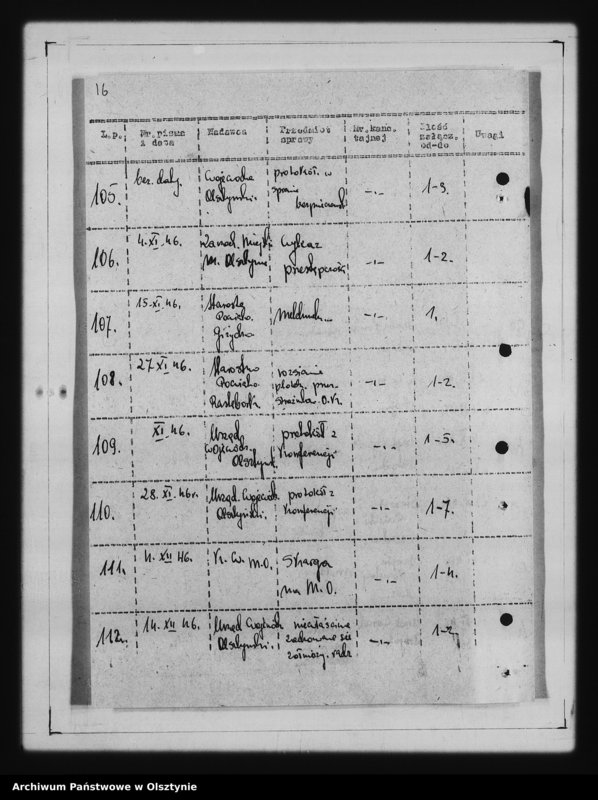 16
L.p. Nr. pisma Nadawca Przedmiot Nr. kanc. Ilość Uwagi
z data sprawy tajnej załącz.
od-do
105. bez daty. Wojewoda protokół w
Olsztyński. spraw -.- 1-3.
106. 4.XI.46. Zarząd Miejski wykaz
m. Olsztyna -.- 1-2.
107. 15.XI.46. Starosta
Powiat. Meldunek -.- 1.
Giżycko
108. 27.XI.46. Starostwo
Powiat. -.- 1-2.
O.K.
109. XI.46. Urząd protokół z
Wojewódz. Konferencji -.- 1-5.
Olsztyn.
110. 28.XI.46r. Urząd Wojewódz. protokół z
Olsztyński. Konferencji -.- 1-7.
111. 4.XII 46. K.W. M.O. Skarga
na M.O. -.- 1-4.
112. 14.XII 46. Urząd Wojewódz. niewłaściwe
Olsztyński. zachowanie się -.- 1-2.
żołnierzy. radz
Archiwum Państwowe w Olsztynie